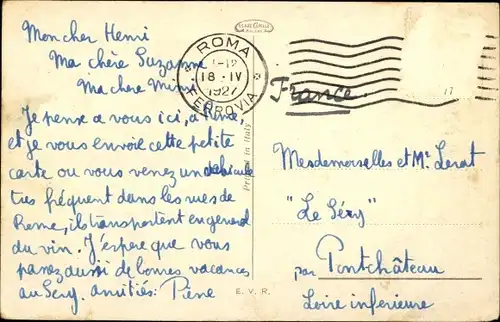 Mon cher Henri
Ma chère Suzanne
Ma chère
Je pense a vous ici, à Rome,
et je vous envoie cette petite
carte ou vous verrez un véhicule
très fréquent dans les rues de
Rome, ils transportent en general
du vin. J'espere que vous
passez aussi de bonnes vacances
au Séry. amitiés: Pierre
ROMA
18·IV
1927
FERROVIA
France
17
Printed in Italy
Mesdemoiselles et Mr Lerat
"Le Séry"
par Pontchâteau
Loire inferieure
E. V. R.